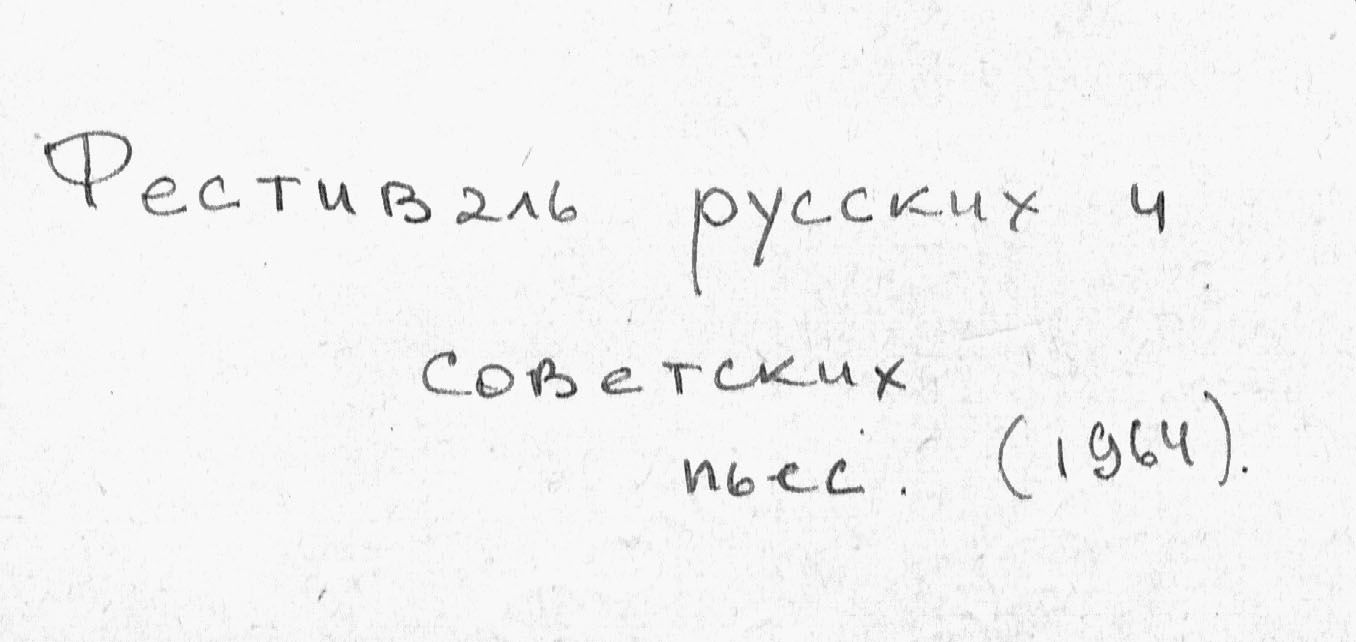 Фестиваль русских и
советских
пьесс. (1964).